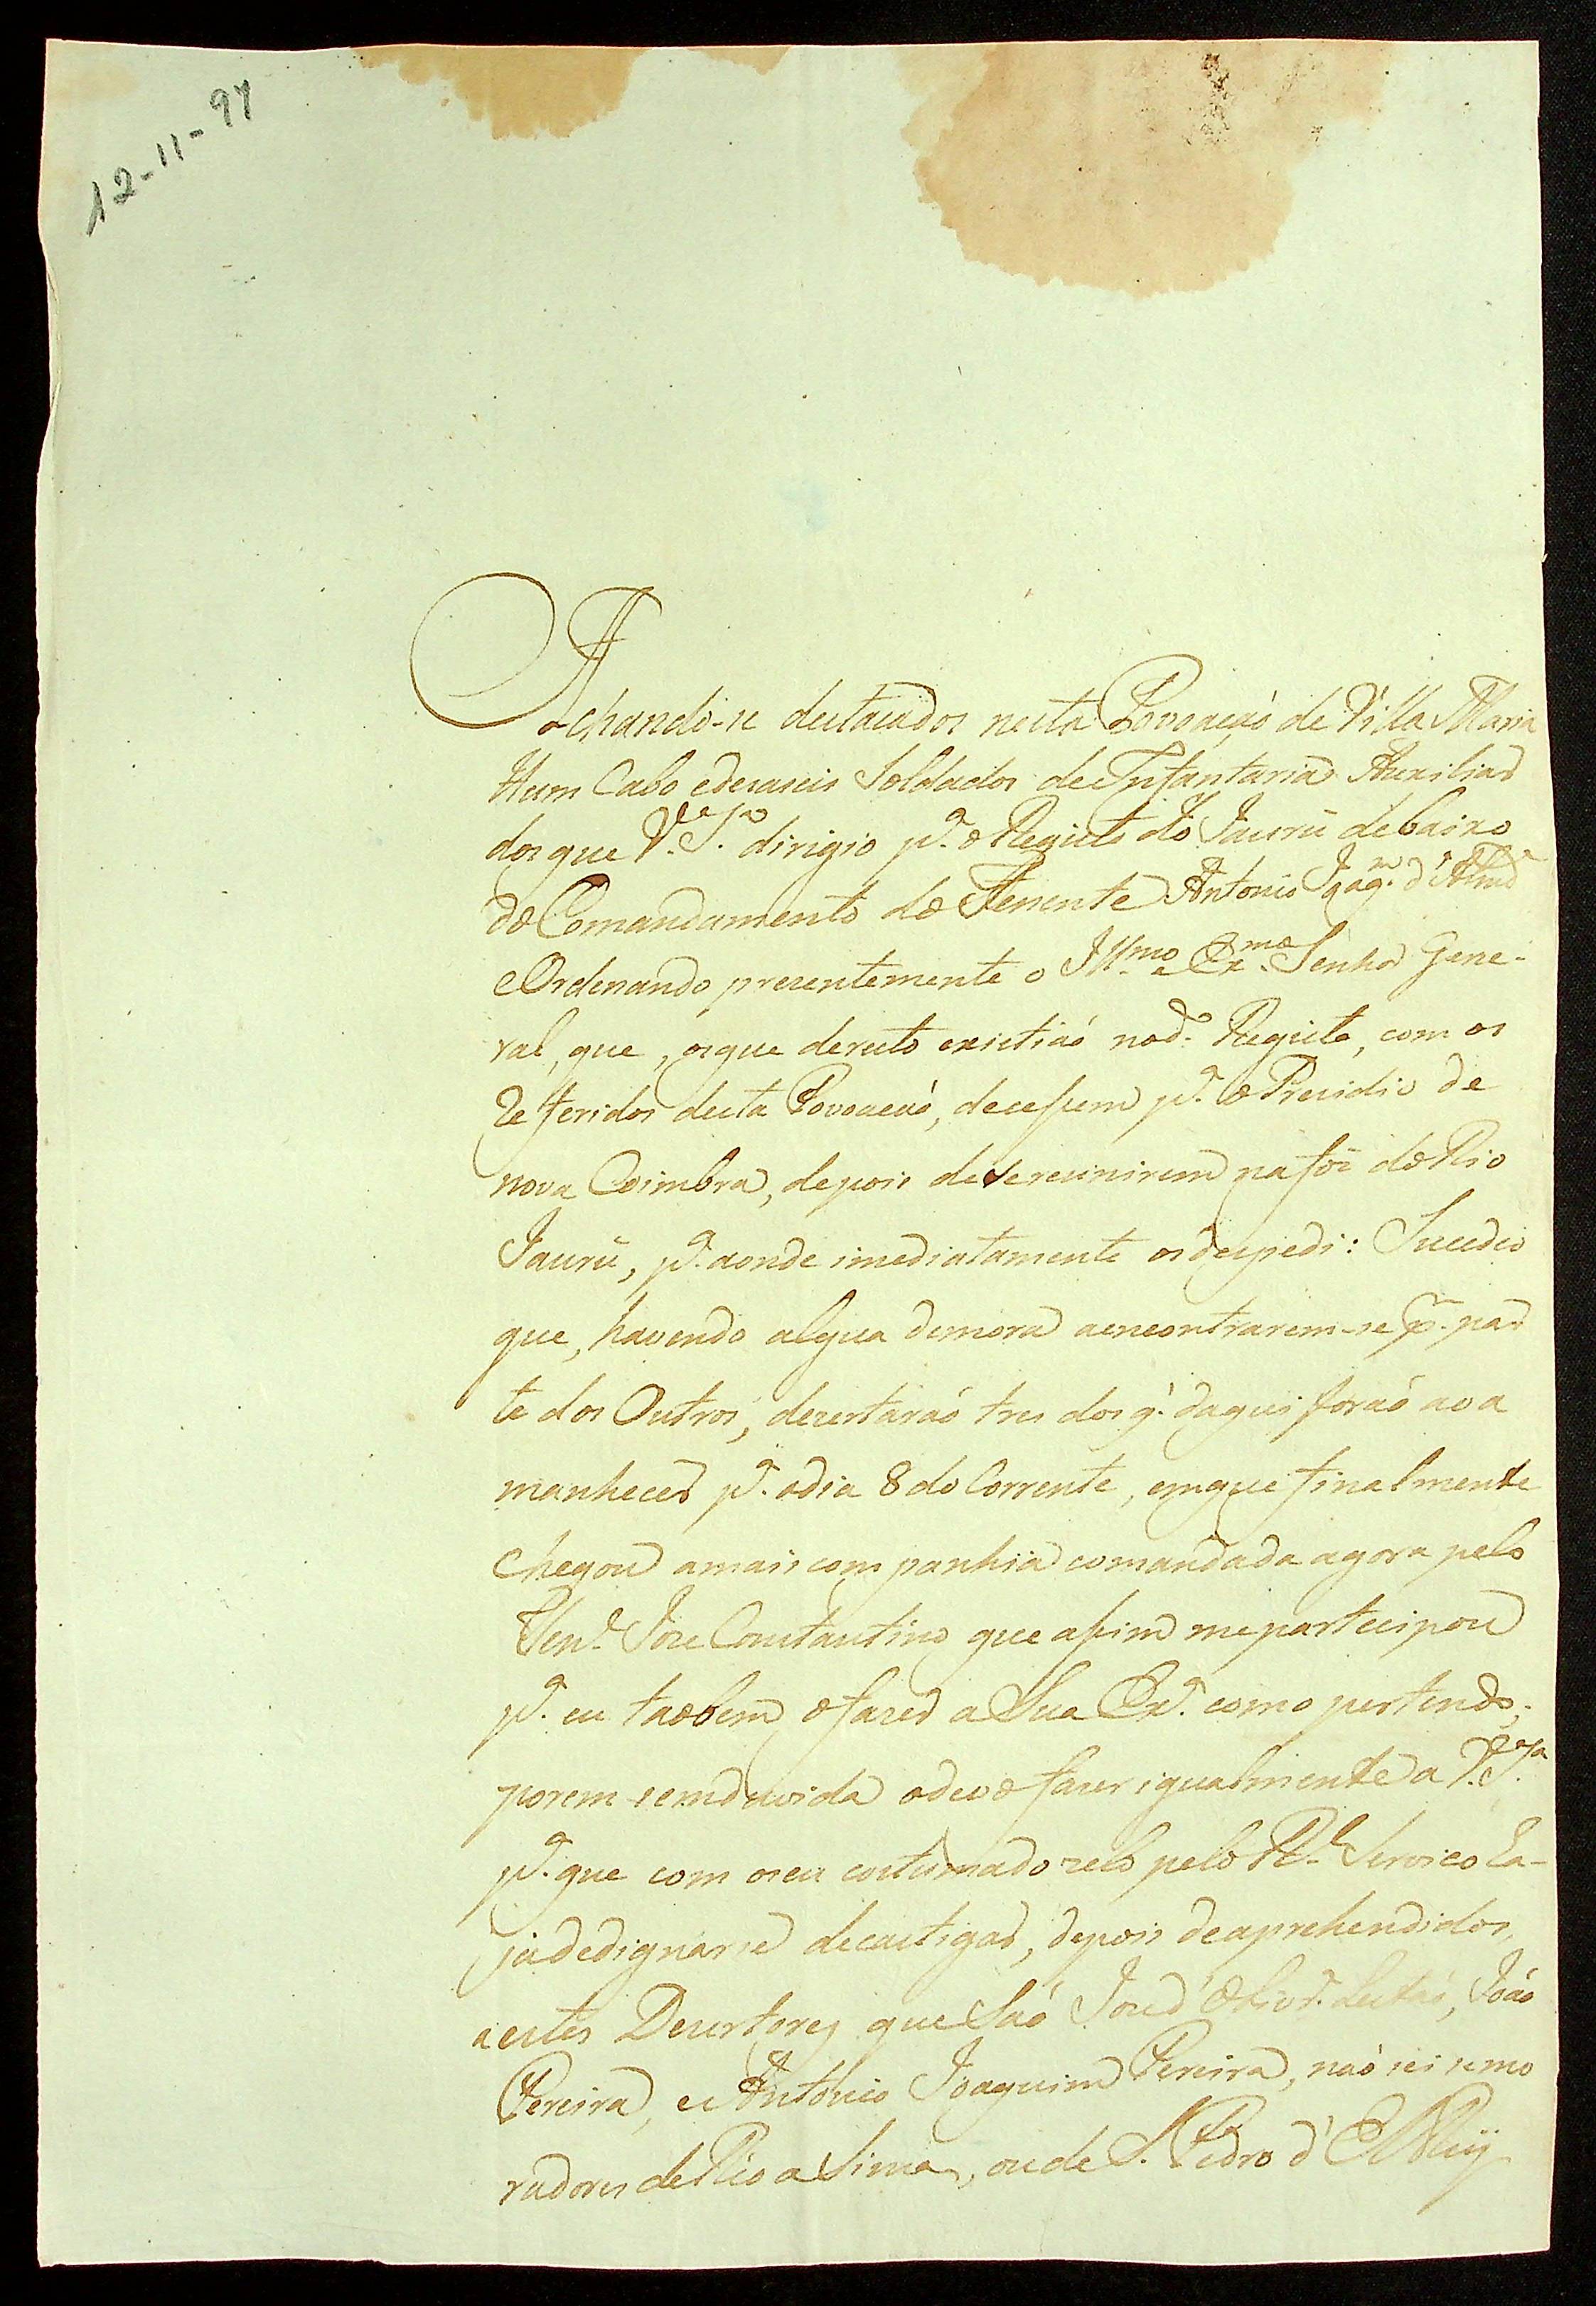 12-11-97
Achando-se destacados nesta Povoação de Villa Maria
Hum Cabo edezaseis Soldados de Infantaria Auxiliar
dos que V.S.ª dirigio p.ª o Registo do Jaurû debaixo
do Comandamento do Tenente Antonio Joaq.m d'Almd.ª
e Ordenando prezentemente o Ill.mo e Ex.mo Senhor Gene-
ral, que, osque deresto existiaó nod.º Registo, com os
referidos desta Povoaçaó, decessem p.ª o Prezidio de
nova Coimbra, depois desereunirem na foz do Rio
Jaurû, p.ª aonde imediatamente osdespedi: Sucedeo
que, havendo algua demora aencontrarem-se p.r par
te dos Outros, dezertaraó tres dos q.' daqui foraó ao a
manhecer p.ª odia 8 do Corrente, emque finalmente
chegou amais companhia comandada agora pelo
Ten.e Joze Constantino que assim mepartecipou
p.ª eu taobem o fazer a Sua Ex.ª como pertendo;
porem semduvida odevo fazer igualmente a V.S.ª
p.ª que com oseu costumado zelo pelo R.l Serviço ha-
ja dedignarse decastigar, depois deaprehendidos,
aestes Dezertores que Saó Joze d' Olivr.ª, Joáo
Pereira, e Antonio Joaquim Pereira, naó sei semo
radores de Rio a Sima, ou de S. Pedro d' El Rey